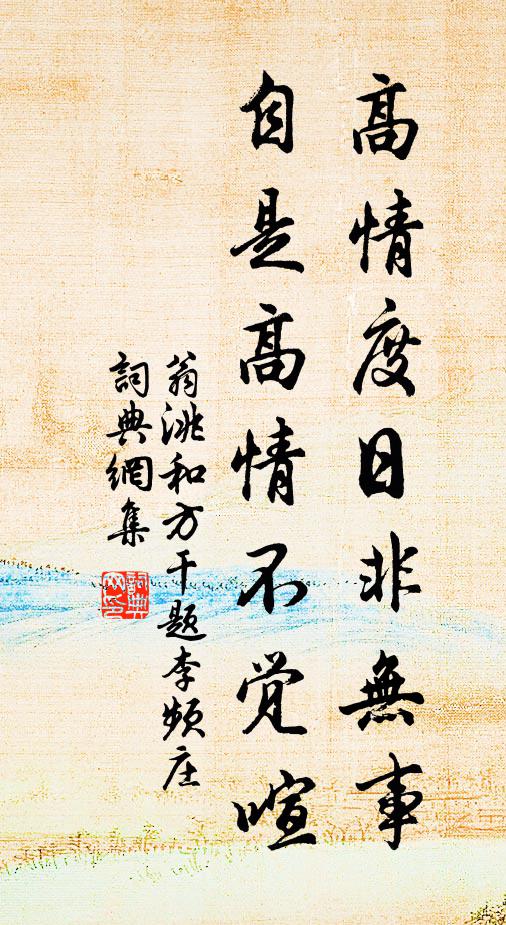 高情度日非無事
自是高情不覺喧
翁洮和方干題李频庄
詞典網集